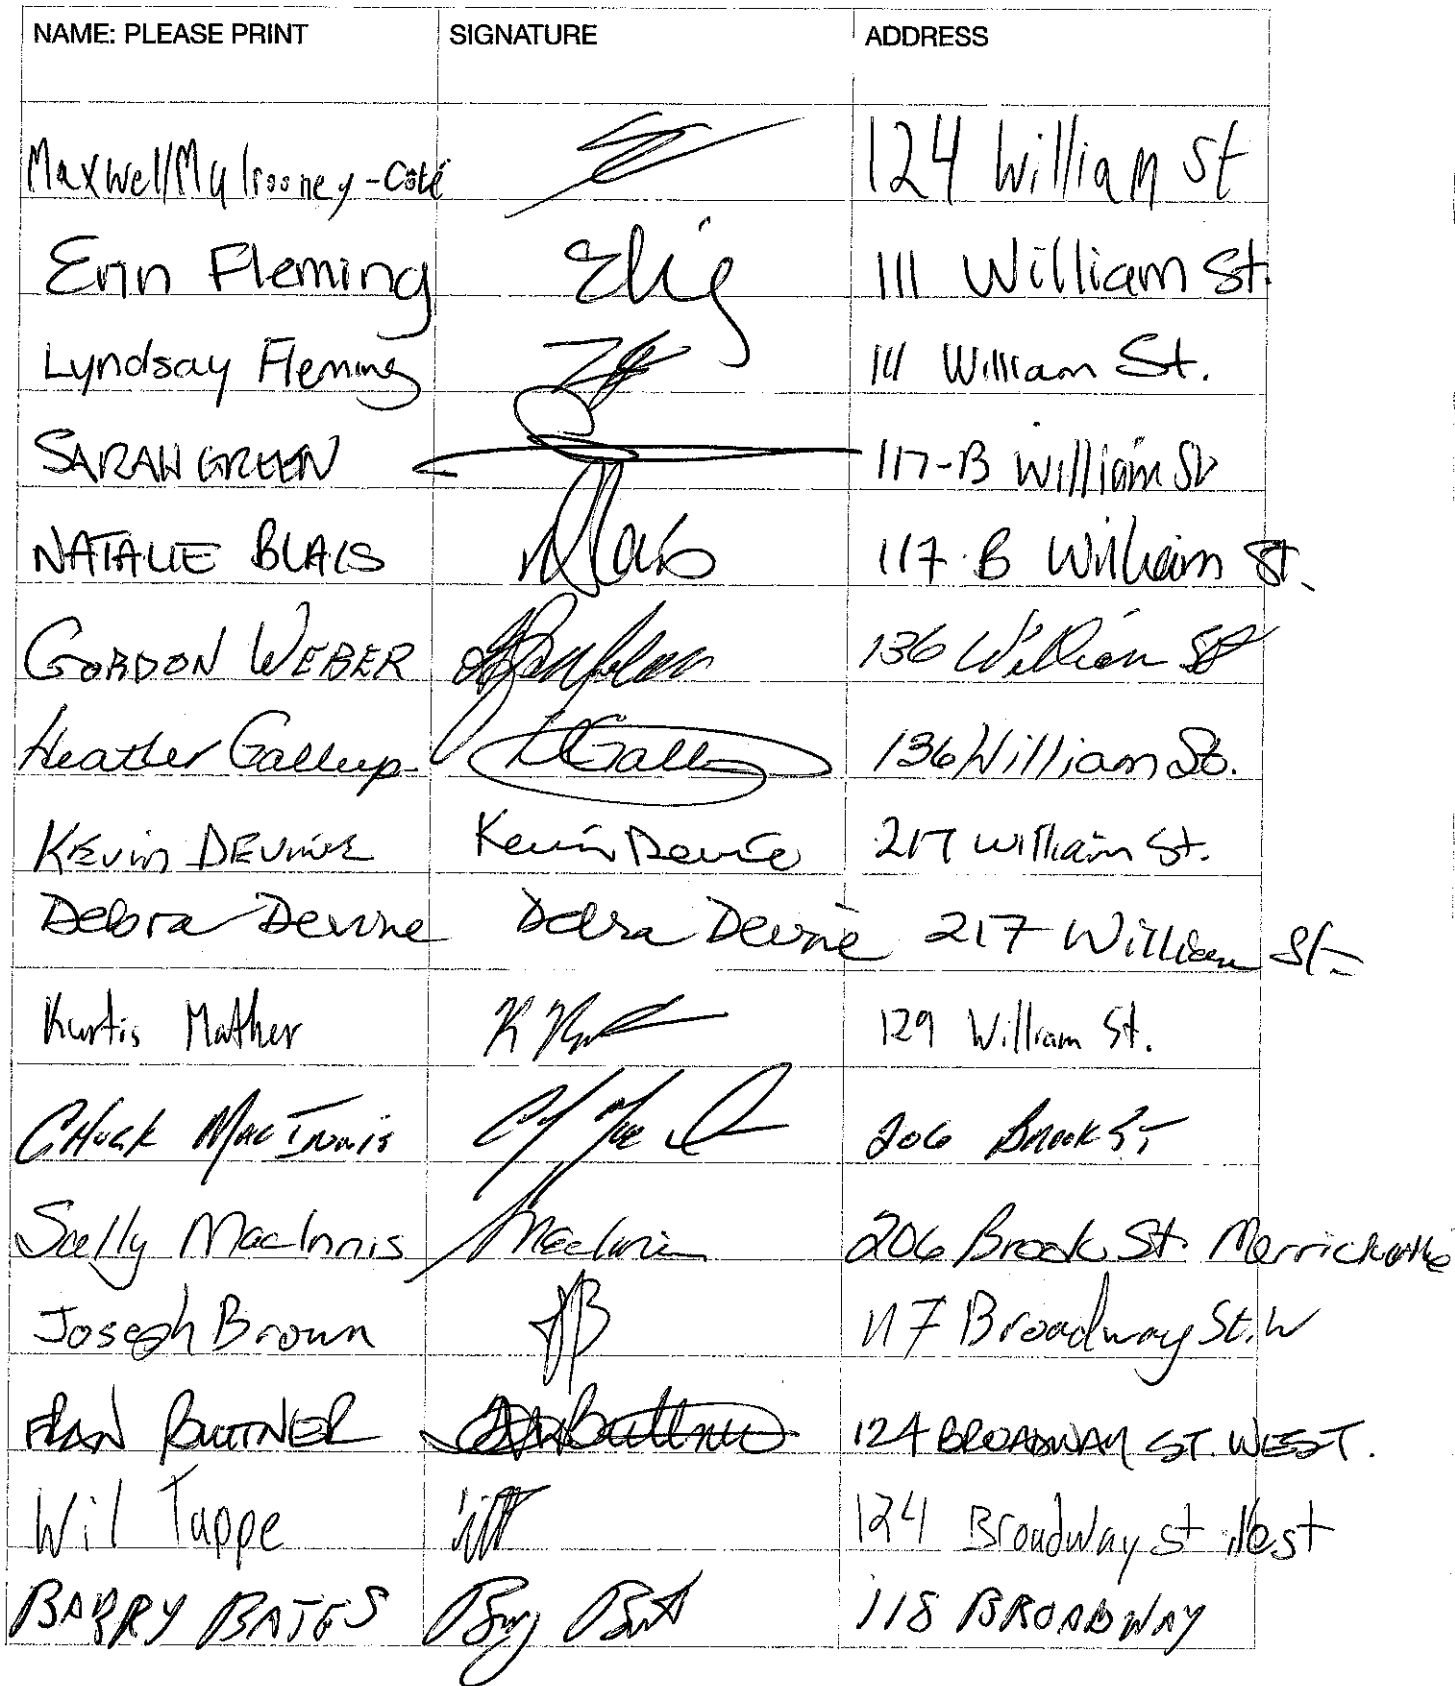 NAME: PLEASE PRINT SIGNATURE ADDRESS
Maxwell Mulrooney-Coté 124 William St
Erin Fleming 111 William St.
Lyndsay Fleming 111 William St.
SARAH GREEN 117-B William St
NATALIE BLAIS 117-B William St.
GORDON WEBER 136 William St
Heather Gallup 136 William St.
KEVIN DEVINE Kevin Devine 217 William St.
Debra Devine Debra Devine 217 William St.
Kurtis Mather 129 William St.
CHUCK MACINNIS 206 BROOK ST
Sally MacInnis MacInnis 206 Brook St. Merrickville
Joseph Brown JB 117 Broadway St. W
FRAN BUTTNER 124 BROADWAY ST. WEST.
Wil Tappe 124 Broadway St West
BARRY BATES 118 BROADWAY